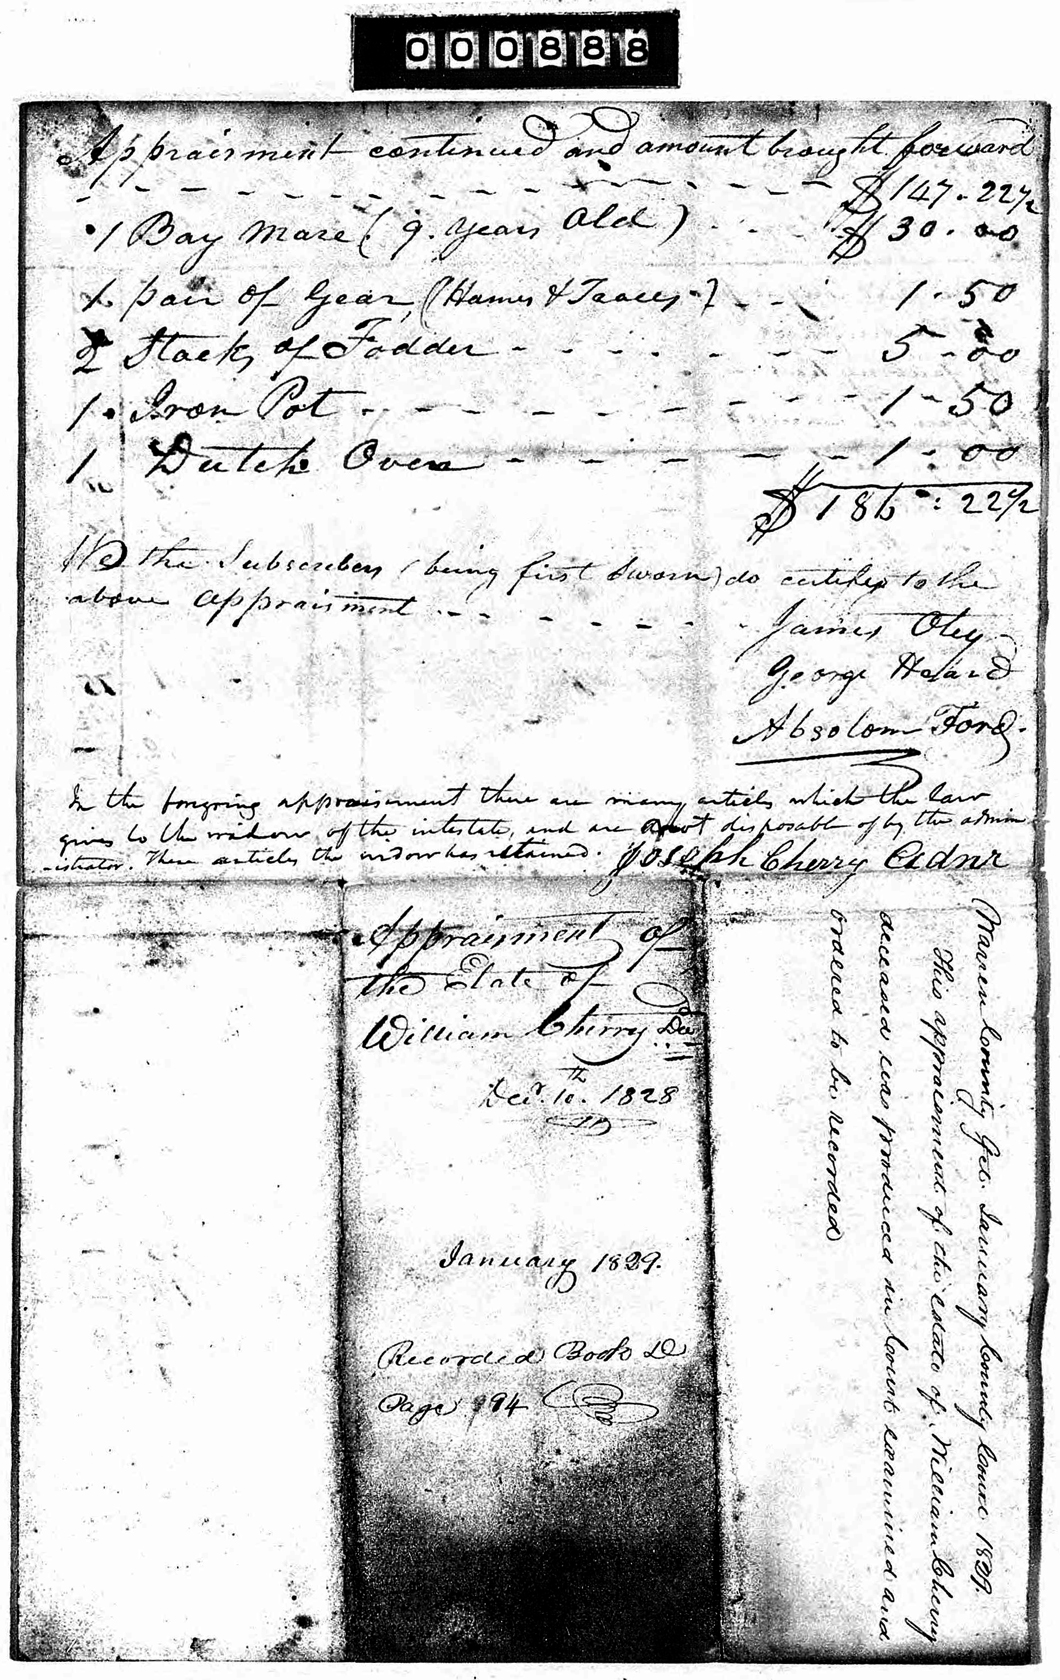 000888
Appraisment continued and amount brought forward
$147.22½
1 Bay Mare (9. years old) $30.00
1. pair of Gear, (Hames & Traces) 1.50
2 Stacks of Fodder 5-00
1. Iron Pot 1-50
1 Dutch Oven 1-00
$186:22½
We the Subscribers (being first Sworn) do certify to the
above appraisment
James Otey
George Heard
Absolom Ford
In the foregoing appraisement there are many articles which the law
gives to the widow of the intestate, and are not disposable of by the admin
istrator. These articles the widow has retained. Joseph Cherry Admr
Appraisment of
the Estate of
William Cherry Dec
Decr. 10th. 1828
January 1829.
Recorded Book D
Page 94
Warren County Sct. January County Court 1829.
This appraisment of the estate of William Cherry
deceased was produced in Court examined and
ordered to be recorded